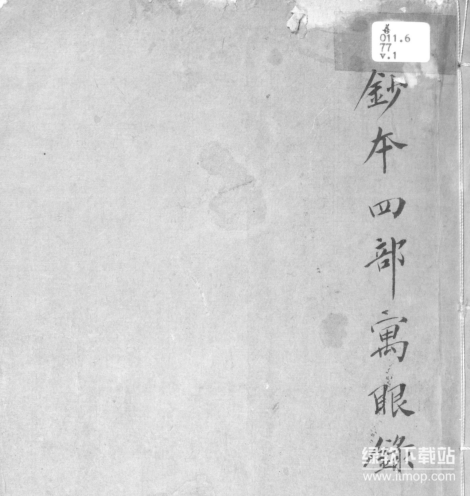 011.6
77
v.1
鈔本四部寓眼錄
绿软下载站
www.limop.com